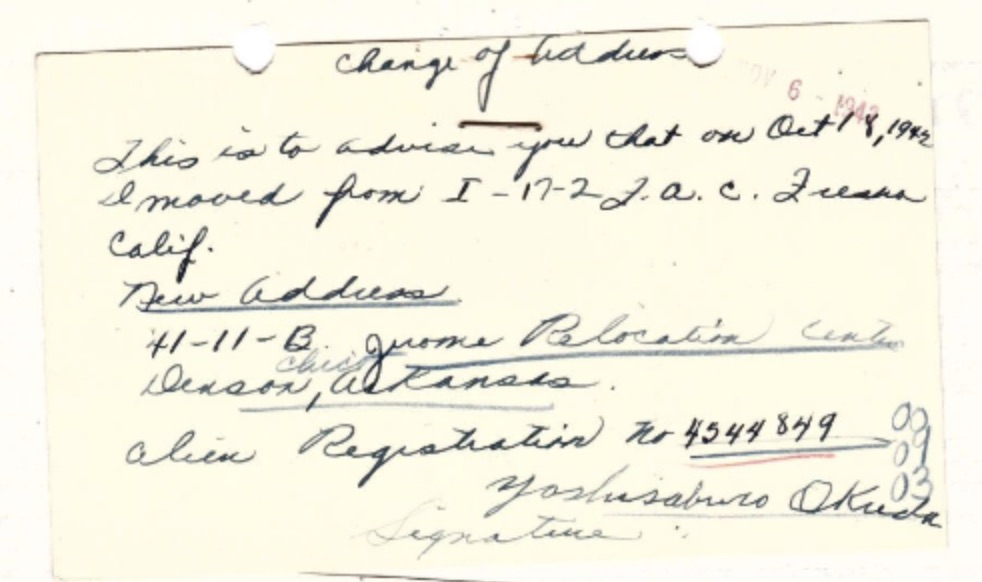 Change of Address
NOV 6 - 1942
This is to advise you that on Oct 18, 1942
I moved from I-17-2 F.A.C. Fresno
Calif.
New Address
41-11-B. Jerome Relocation Center
Denson, Arkansas.
Alien Registration No 4544849
09
09
03
Yoshisaburo Okuda
Signature